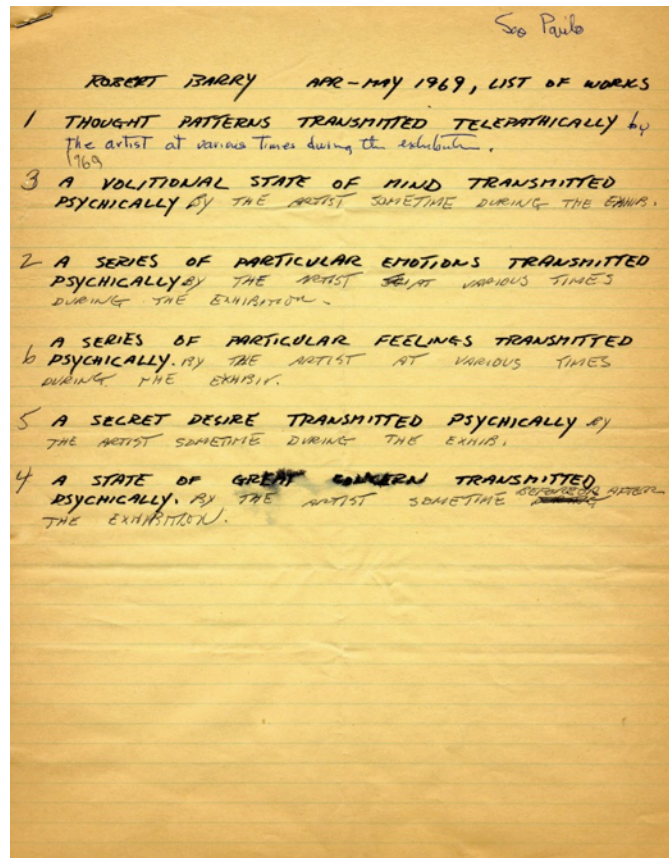 Sao Paulo
ROBERT BARRY APR-MAY 1969, LIST OF WORKS
1 THOUGHT PATTERNS TRANSMITTED TELEPATHICALLY by
the artist at various times during the exhibition.
1969
3 A VOLITIONAL STATE OF MIND TRANSMITTED
PSYCHICALLY BY THE ARTIST SOMETIME DURING THE EXHIB.
2 A SERIES OF PARTICULAR EMOTIONS TRANSMITTED
PSYCHICALLY BY THE ARTIST AT VARIOUS TIMES
DURING THE EXHIBITION.
A SERIES OF PARTICULAR FEELINGS TRANSMITTED
6 PSYCHICALLY. BY THE ARTIST AT VARIOUS TIMES
DURING THE EXHIBIT.
5 A SECRET DESIRE TRANSMITTED PSYCHICALLY BY
THE ARTIST SOMETIME DURING THE EXHIB.
4 A STATE OF GREAT CONCERN TRANSMITTED
PSYCHICALLY. BY THE ARTIST SOMETIME BEFORE OR AFTER
THE EXHIBITION.